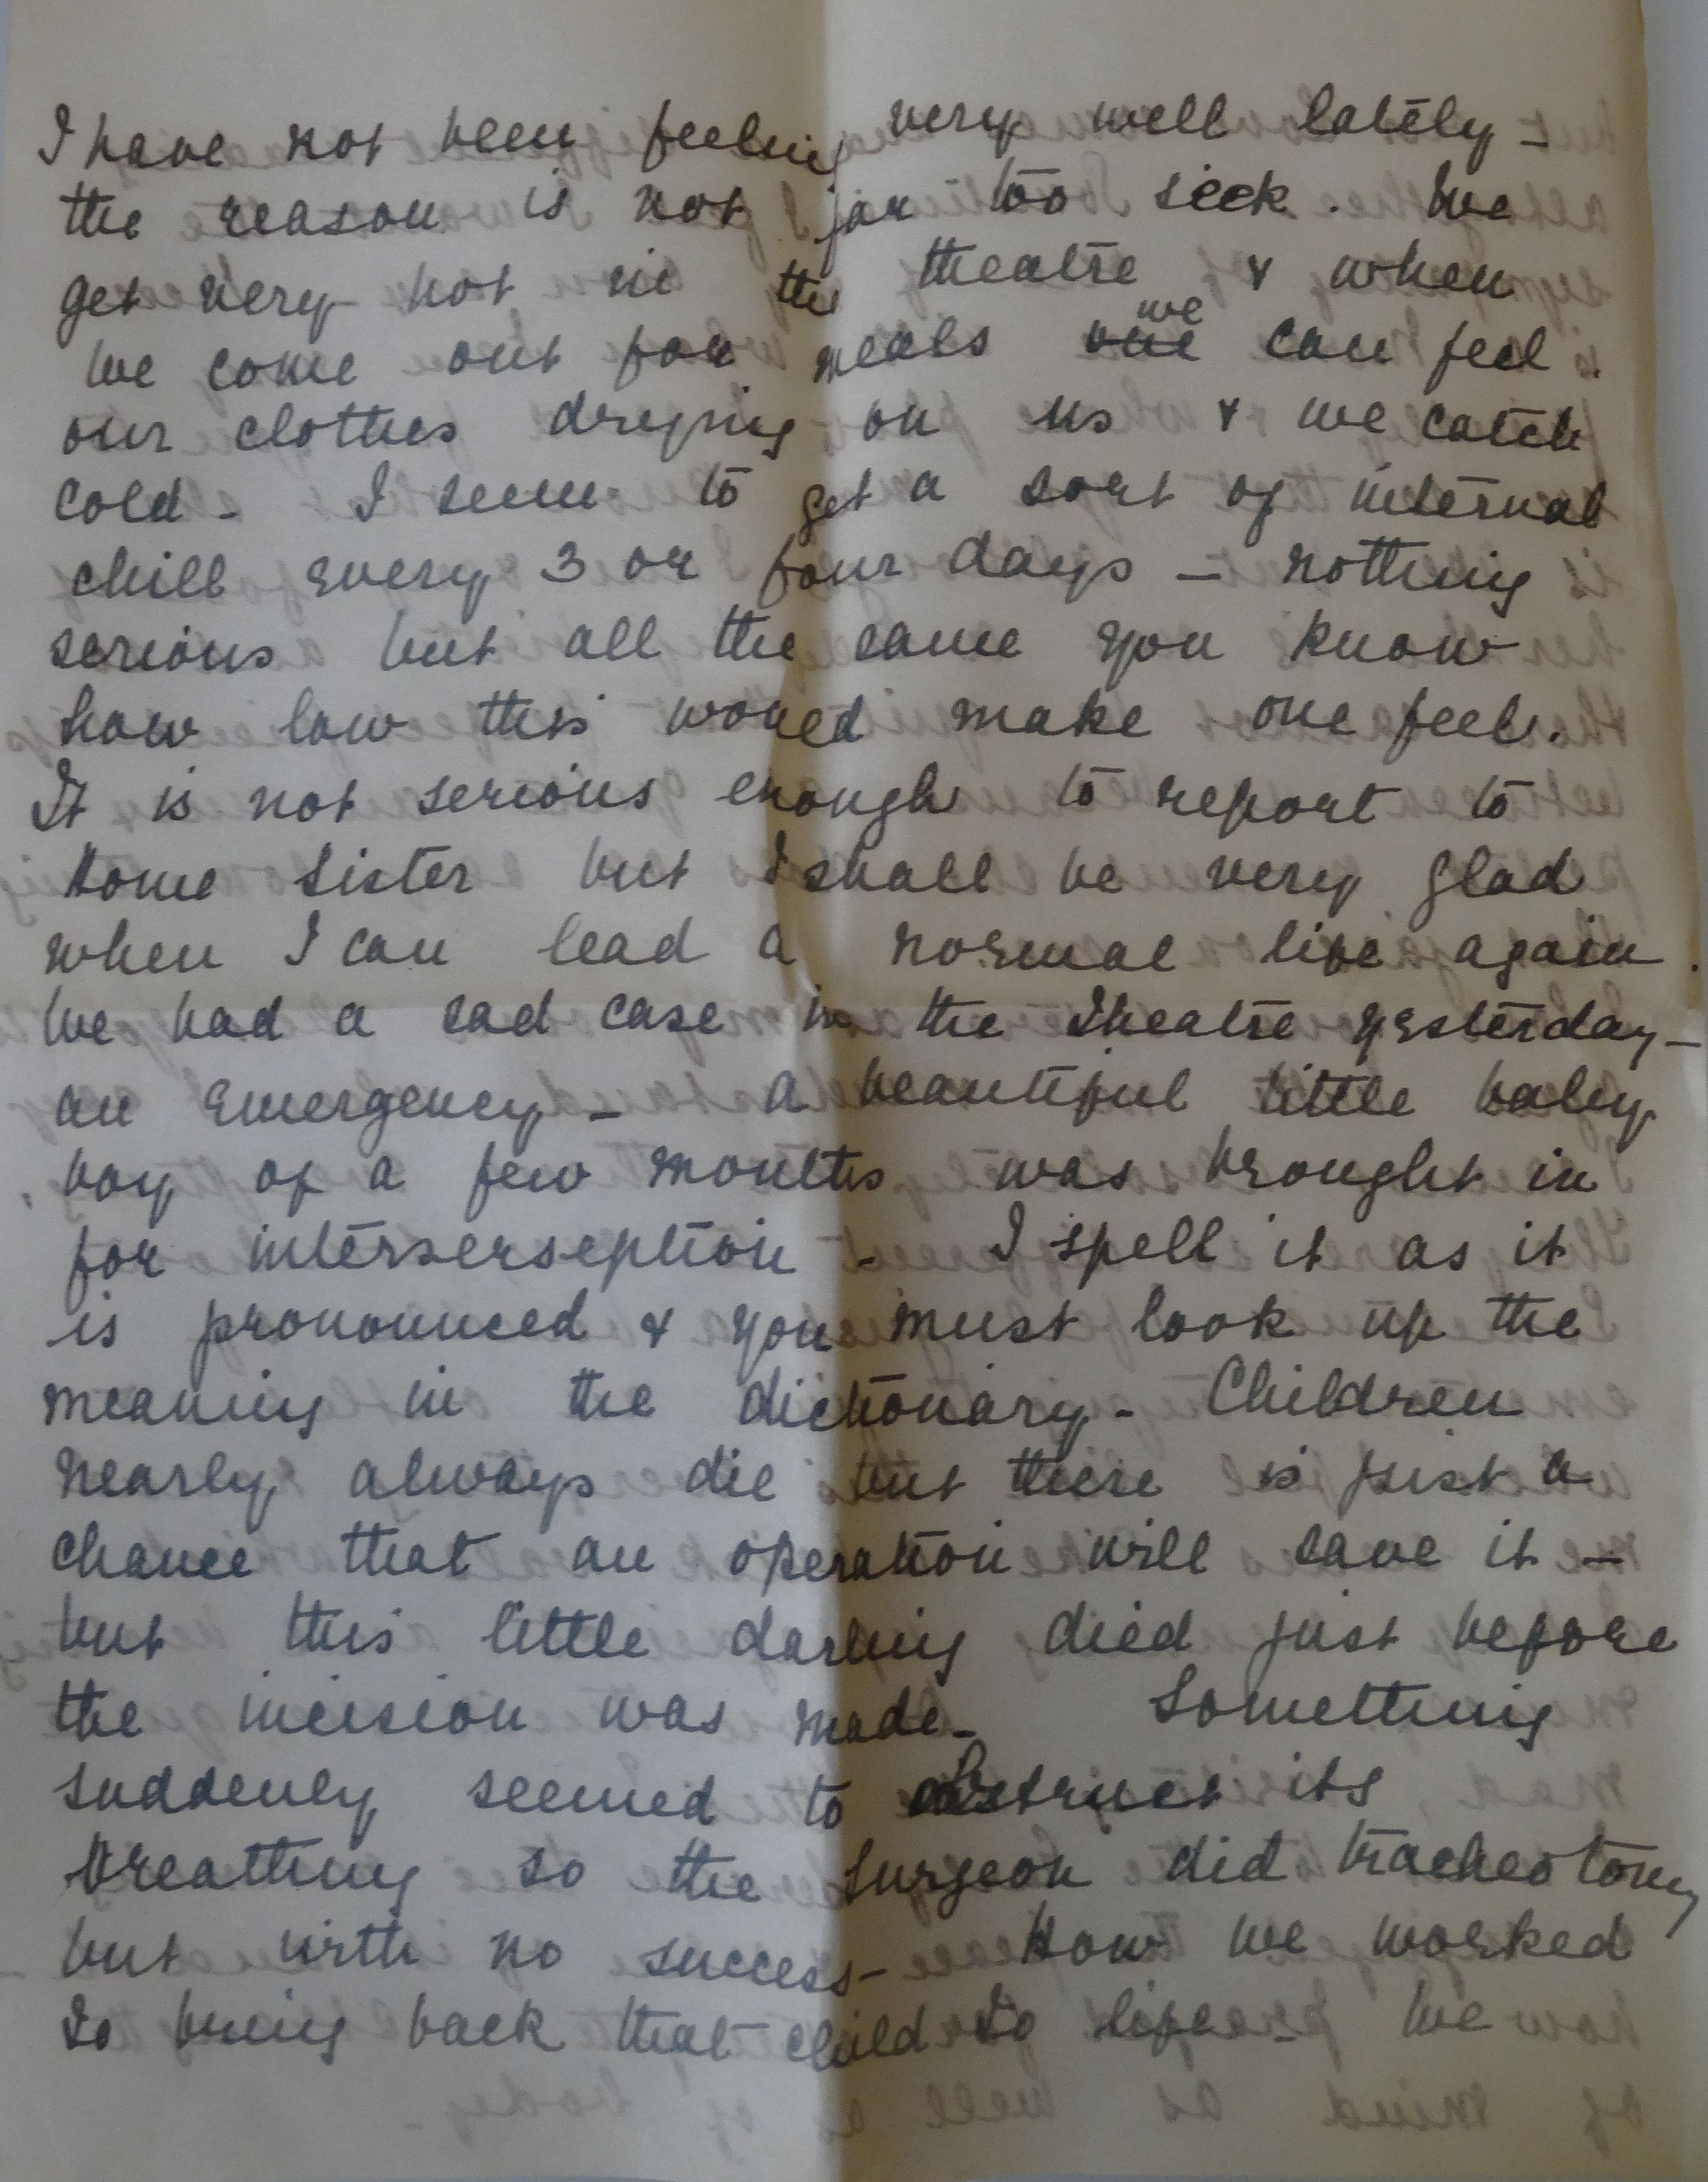 I have not been feeling very well lately -
the reason is not far too seek. We
get very hot in the theatre & when
we come out for meals we can feel
our clothes drying on us & we catch
cold - I seem to get a sort of internal
chill every 3 or four days - nothing
serious but all the same you know
how low this would make one feel.
It is not serious enough to report to
Home Sister but I shall be very glad
when I can lead a normal life again.
We had a sad case in the Theatre yesterday -
an emergency - a beautiful little baby
boy of a few months was brought in
for interserseption - I spell it as it
is pronounced & you must look up the
meaning in the dictionary - Children
nearly always die but there is just a
chance that an operation will save it -
but this little darling died just before
the incision was made - Something
suddenly seemed to obstruct its
breathing so the surgeon did tracheotomy
but with no success - How we worked
to bring back that child to life - We